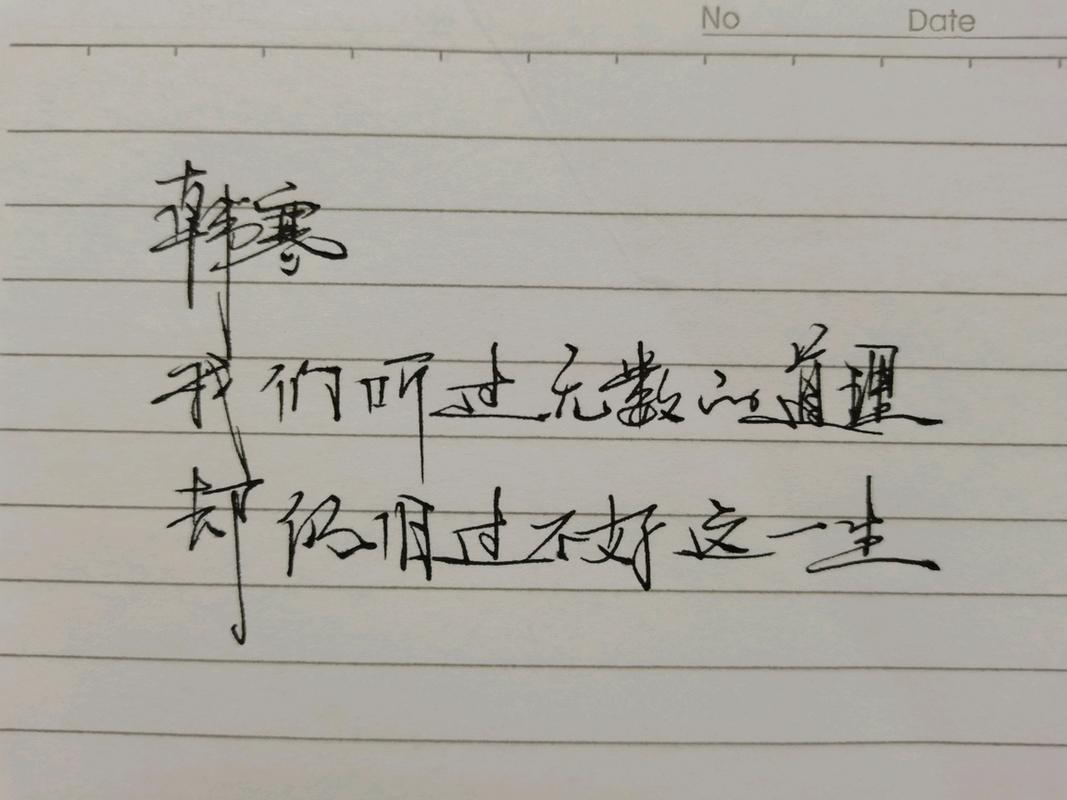 No Date
韩寒
我们听过无数的道理
却仍旧过不好这一生